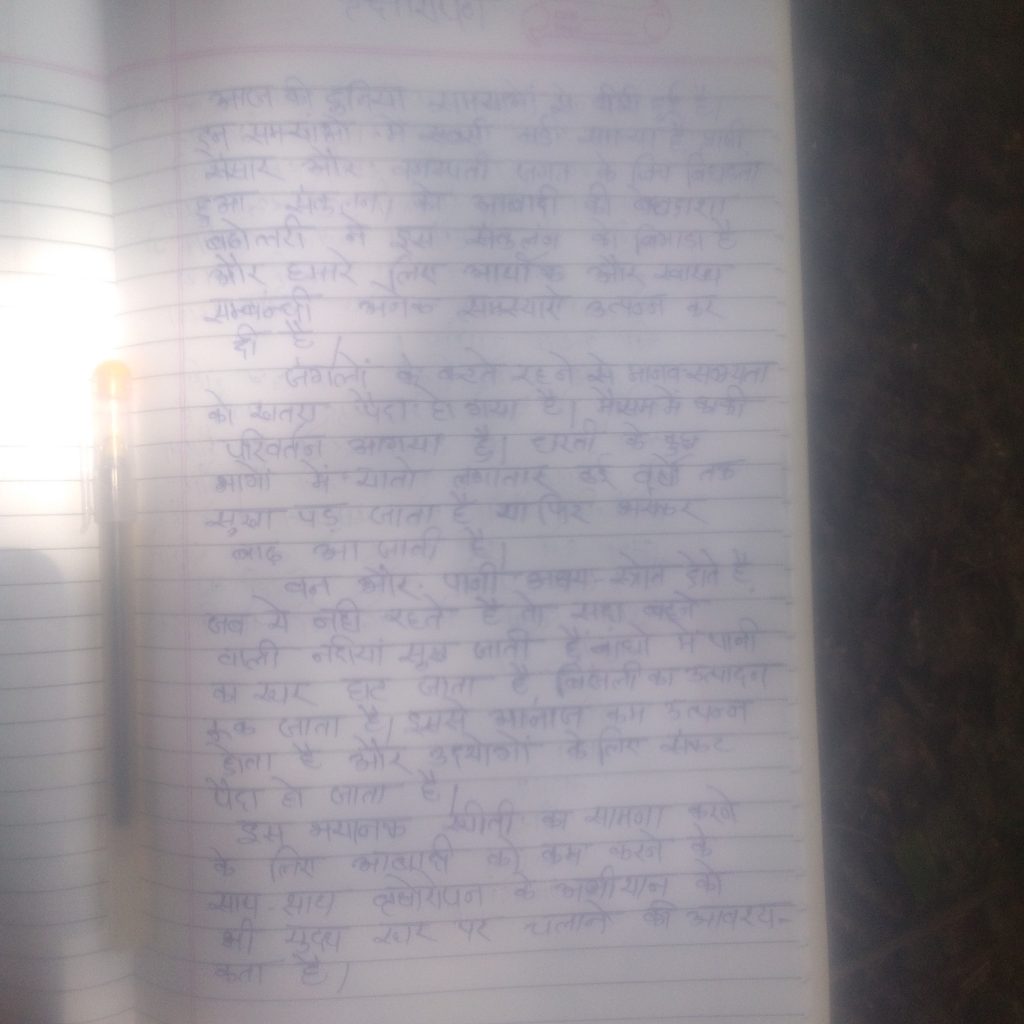 वृक्षारोपण
आज की दुनिया समस्याओं से घीरी हुई है।
इन समस्याओं में सबसे बड़ी समस्या है प्राणी
संसार और वनस्पती जगत के लिए बिगड़ता
हुआ संकलन। की आबादी की बेतहाशा
बढोत्तरी ने इस संकलन को बिगाडा है
और हमारे लिए आर्थीक और स्वास्थ्य
सम्बन्धी अनेक समस्याऐ उत्पन्न कर
दी है।
जंगलों के कटते रहने से मानव सभ्यता
को खतरा पैदा हो गया है। मौसम मे काफी
परिवर्तन आगया है। धरती के कुछ
भागों में यातो लगातार कई वर्षो तक
सुखा पड़ जाता है या फिर भयंकर
बाढ आ जाती है।
वन और पानी अक्षय स्त्रोत होते है
जब ये नही रहते है तो सदा बहने
वाली नदीयां सुख जाती है बांधो में पानी
का स्तर घट जाता है बिजली का उत्पादन
रूक जाता है। इससे अनाज कम उत्पन्न
होता है और उद्योगों के लिए संकट
पैदा हो जाता है।
इस भयानक स्थीती का सामना करने
के लिए आबादी को कम करने के
साथ-साथ वृक्षोरोपन के अभीयान को
भी स्तर पर चलाने की आवश्य-
कता है।